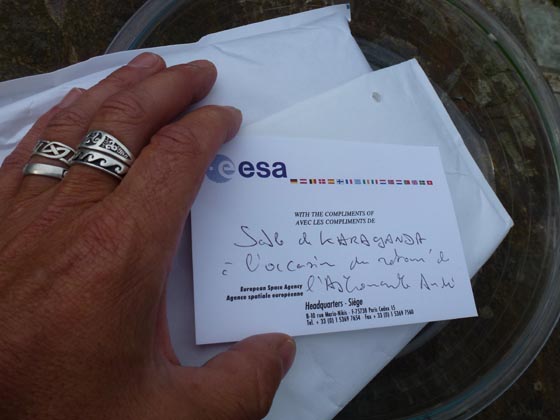 esa
WITH THE COMPLIMENTS OF
AVEC LES COMPLIMENTS DE
Sable de KARAGANDA
à l'occasion du retour de
l'Astronaute André
European Space Agency
Agence spatiale européenne
Headquarters - Siège
8-10 rue Mario-Nikis - F-75738 Paris Cedex 15
Tel. + 33 (0) 1 5369 7654 Fax + 33 (0) 1 5369 7560